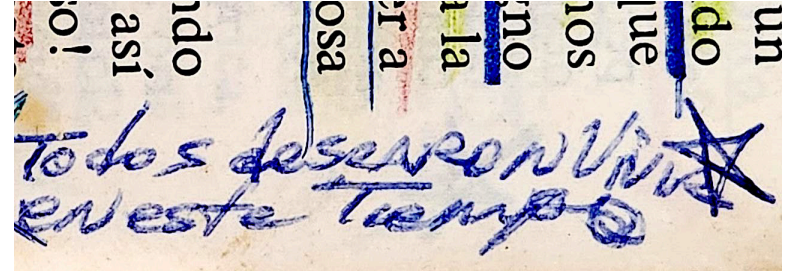 so!
así
ndo
osa
er a
a la
gno
nos
que
do
un
Todos desearon Vivir
en este Tiempo